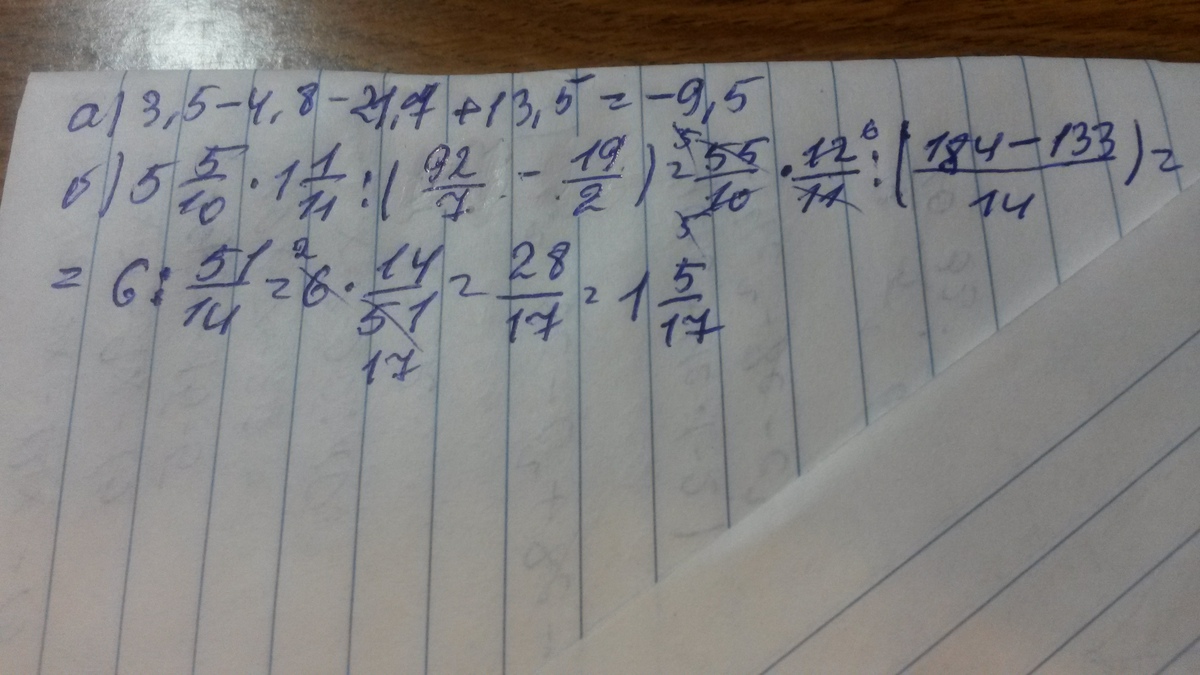 а) 3,5 - 4,8 - 21,7 + 13,5 = -9,5
б) 5 5/10 · 1 1/11 : ( 92/7 - 19/2 ) = 55/10 · 12/11 : ( (184 - 133)/14 ) =
= 6 : 51/14 = 6 · 14/51 = 28/17 = 1 5/17